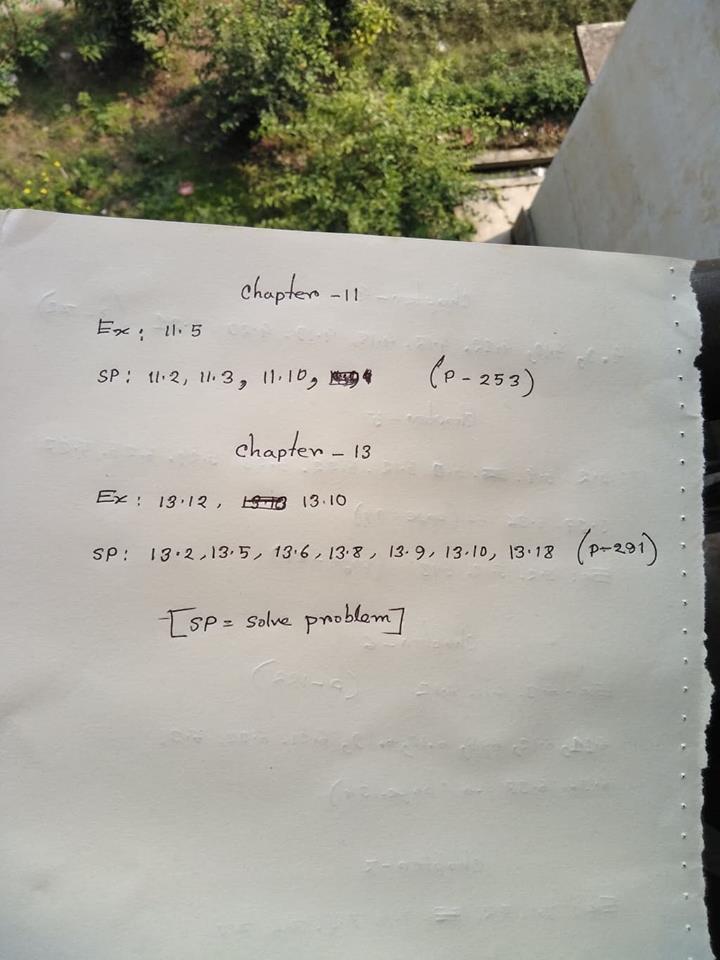 Chapter - 11
Ex: 11.5
SP: 11.2, 11.3, 11.10, (P-253)
Chapter - 13
Ex: 13.12, 13.10
SP: 13.2, 13.5, 13.6, 13.8, 13.9, 13.10, 13.18 (P-291)
[SP = solve problem]